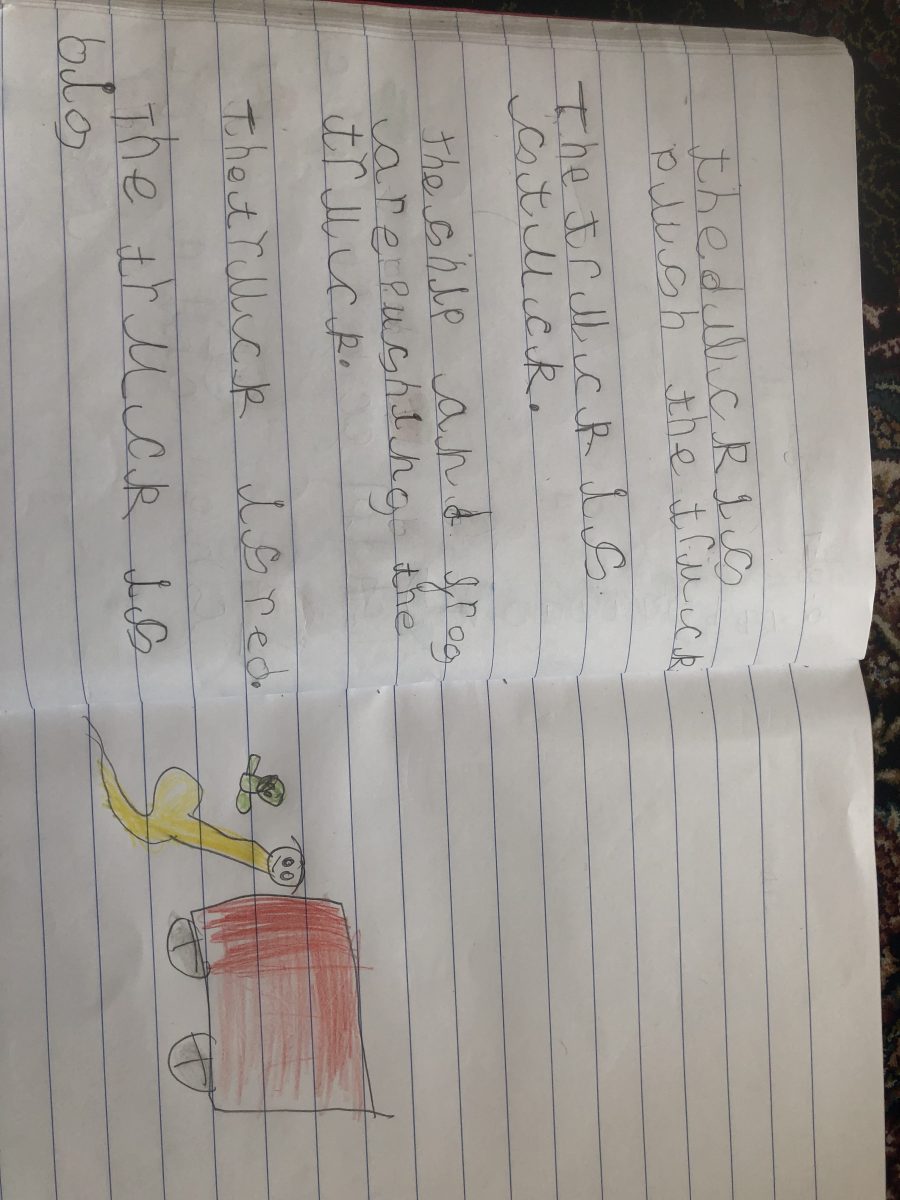 theduck is
push the truck
The truck is
stuck.
the ship and frog
are pushing the
truck.
The truck is red.
The thuck is
big